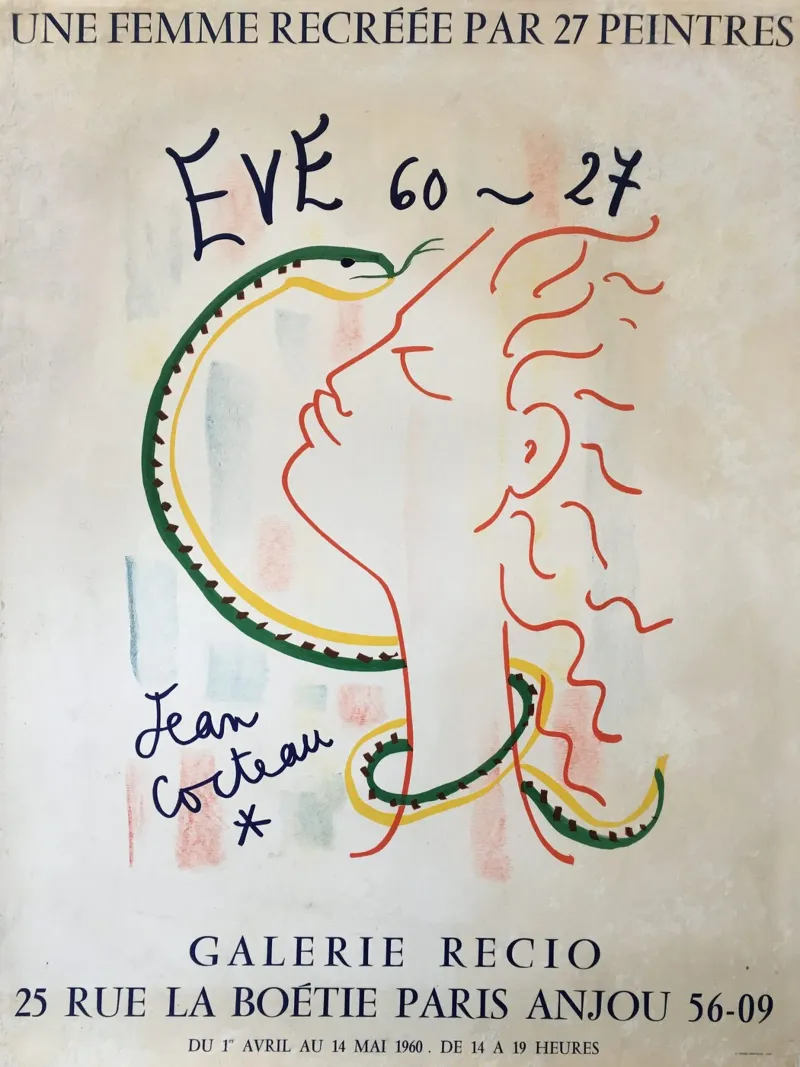 UNE FEMME RECRÉÉE PAR 27 PEINTRES
EVE 60 ~ 27
Jean
Cocteau
*
GALERIE RECIO
25 RUE LA BOÉTIE PARIS ANJOU 56-09
DU 1er AVRIL AU 14 MAI 1960 . DE 14 A 19 HEURES